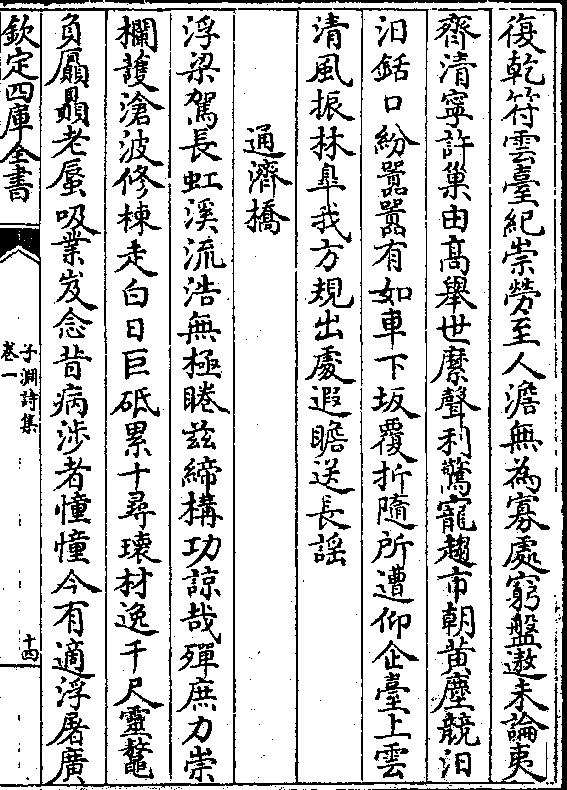 復乾符雲臺紀崇勞至人澹無為寡處窮盤遨未論夷
齊清寧許巢由高舉世縻聲利驚寵趨市朝黄塵競汨
汨銛口紛囂囂有如車下坂覆折隨所遭仰企臺上雲
清風振林臯我方規出處遐瞻送長謡
通濟橋
浮梁駕長虹溪流浩無極睠兹締構功諒哉殫庶力崇
欄護滄波修棟走白日巨砥累十尋瓌材逸千尺靈鼇
負贔屭老蜃吸業岌念昔病涉者憧憧今有適浮屠廣
欽定四庫全書
子淵詩集
卷一
十四